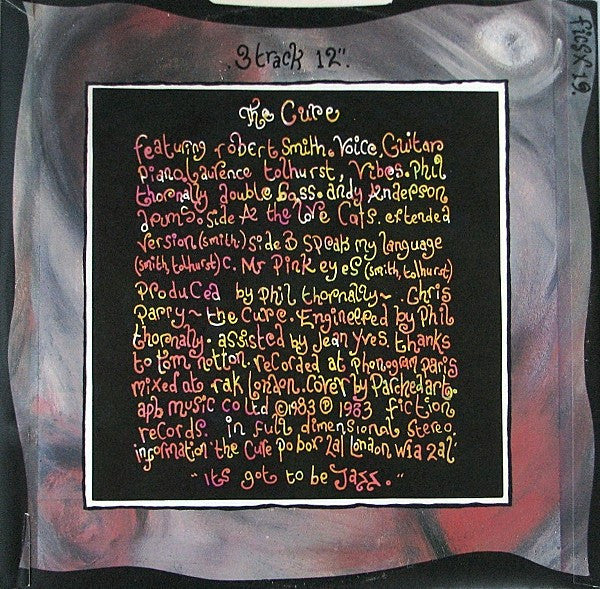 3 track 12".
ficsx 19.
The Cure
featuring robert smith. voice, Guitar
piano. Laurence tolhurst, Vibes. Phil
thornally double bass. andy Anderson
drums. side A the love Cats. extended
version (smith) side B speak my language
(smith, tolhurst) C. Mr Pink eyes (smith, tolhurst)
produced by phil thornally ~ . Chris
parry ~ the cure. Engineered by Phil
thornally. assisted by jean yves. thanks
to tom notton. recorded at phonogram paris
mixed at rak london. cover by Parchedart.
apb music co ltd ©1983 ℗ 1983 fiction
records. in full dimensional stereo.
information the Cure po box 2al london w1a 2al.
"its got to be Jazz."